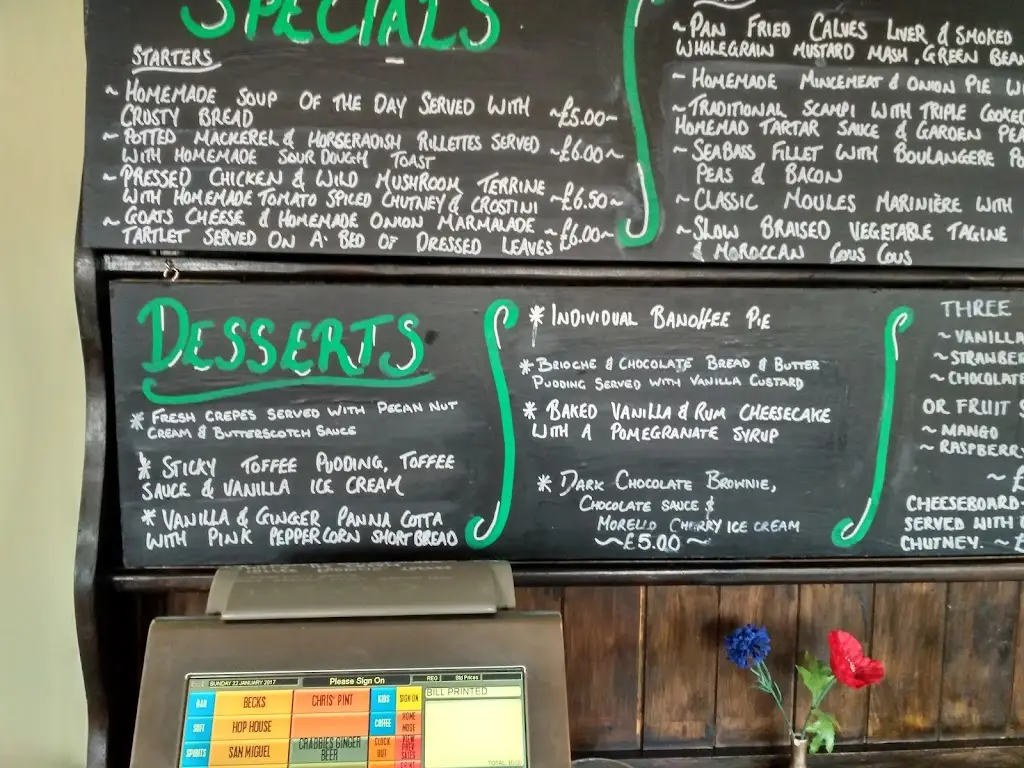 SPECIALS
STARTERS
~ HOMEMADE SOUP OF THE DAY SERVED WITH
CRUSTY BREAD ~£5.00~
~ POTTED MACKEREL & HORSERADISH RILLETTES SERVED
WITH HOMEMADE SOUR DOUGH TOAST ~£6.00~
~ PRESSED CHICKEN & WILD MUSHROOM TERRINE
WITH HOMEMADE TOMATO SPICED CHUTNEY & CROSTINI ~£6.50~
~ GOATS CHEESE & HOMEMADE ONION MARMALADE
TARTLET SERVED ON A BED OF DRESSED LEAVES ~£6.00~
~ PAN FRIED CALVES LIVER & SMOKED
WHOLEGRAIN MUSTARD MASH, GREEN BEAN
~ HOMEMADE MINCEMEAT & ONION PIE WI
~ TRADITIONAL SCAMPI WITH TRIPLE COOKED
HOMEMAD TARTAR SAUCE & GARDEN PEA
~ SEABASS FILLET WITH BOULANGERE PO
PEAS & BACON
~ CLASSIC MOULES MARINIÈRE WITH
~ SLOW BRAISED VEGETABLE TAGINE
& MOROCCAN COUS COUS
DESSERTS
* FRESH CREPES SERVED WITH PECAN NUT
CREAM & BUTTERSCOTCH SAUCE
* STICKY TOFFEE PUDDING, TOFFEE
SAUCE & VANILLA ICE CREAM
* VANILLA & GINGER PANNA COTTA
WITH PINK PEPPERCORN SHORTBREAD
* INDIVIDUAL BANOFFEE PIE
* BRIOCHE & CHOCOLATE BREAD & BUTTER
PUDDING SERVED WITH VANILLA CUSTARD
* BAKED VANILLA & RUM CHEESECAKE
WITH A POMEGRANATE SYRUP
* DARK CHOCOLATE BROWNIE,
CHOCOLATE SAUCE &
MORELLO CHERRY ICE CREAM
~£5.00~
THREE
~ VANILLA
~ STRAWBER
~ CHOCOLATE
OR FRUIT S
~ MANGO
~ RASPBERR
~£
CHEESEBOARD
SERVED WITH
CHUTNEY. ~£
SUNDAY 22 JANUARY 2017 Please Sign On REG Std Prices
BAR BECKS CHRIS' PINT KIDS SIGN ON BILL PRINTED
SOFT HOP HOUSE COFFEE HOME MODE
SPIRITS SAN MIGUEL CRABBIES GINGER BEER CLOCK OUT
TOTAL